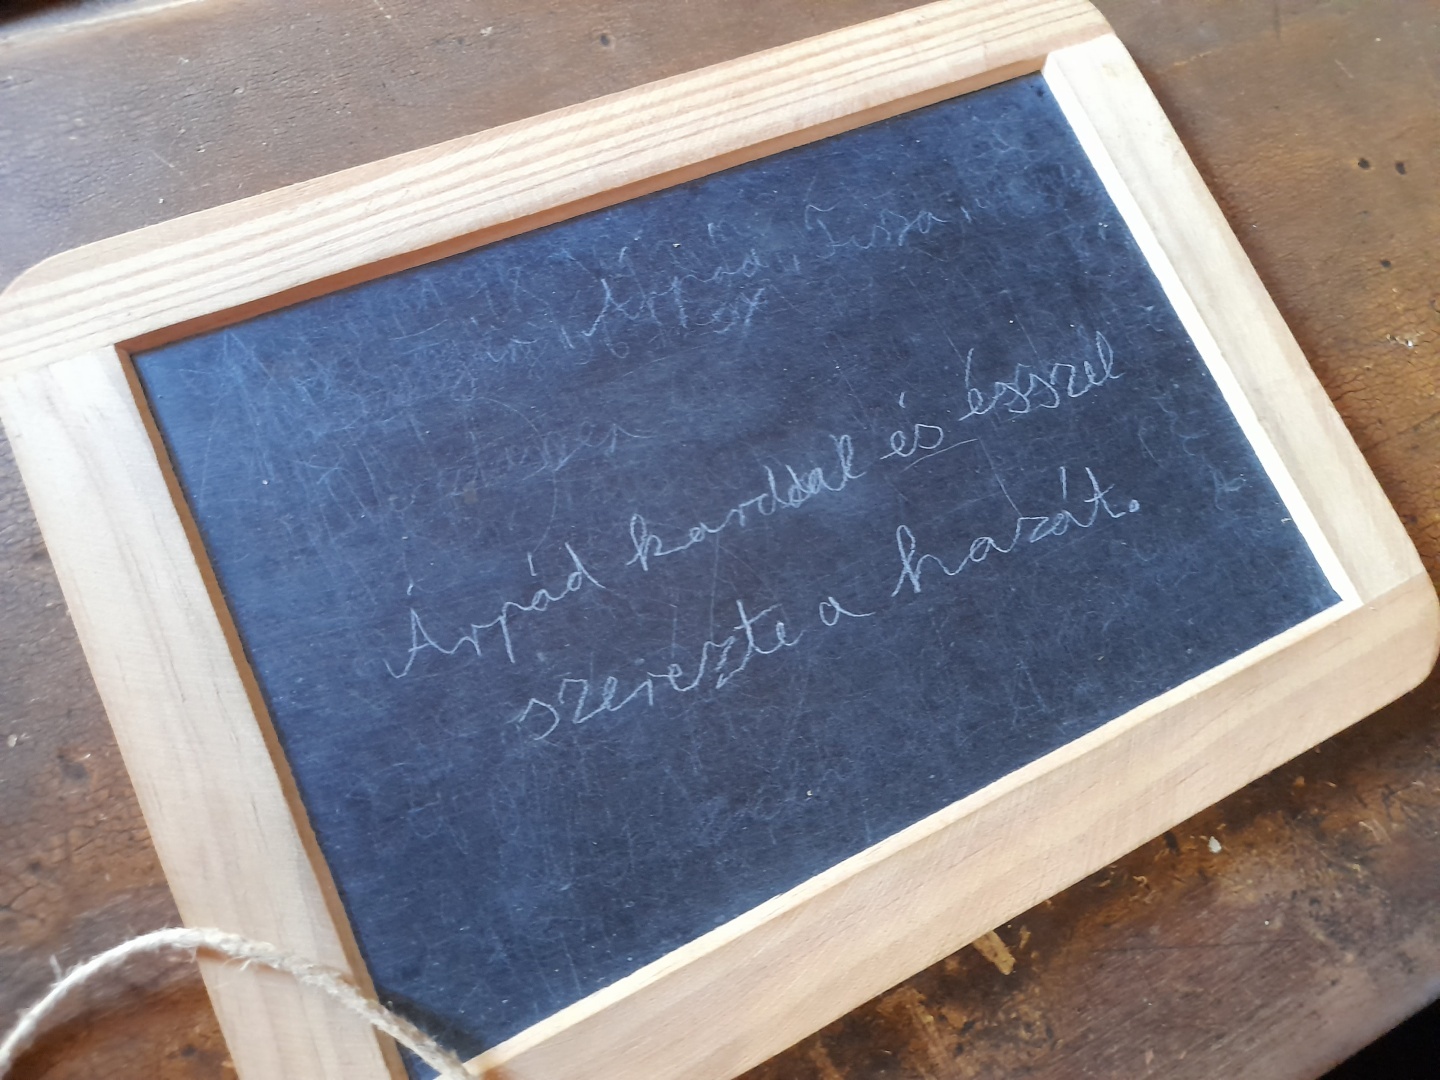 Árpád, Tisza,
Árpád karddal és ésszel
szerezte a hazát.